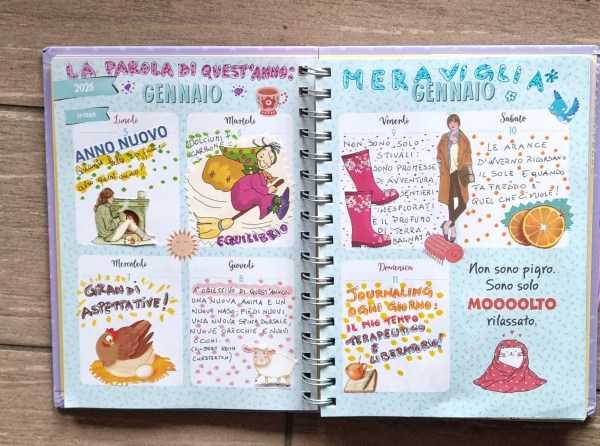 LA PAROLA DI QUEST'ANNO:
MERAVIGLIA
2026
GENNAIO
GENNAIO
Lunedì
5
ANNO NUOVO
Martedì
6
DOLCIUMI E
CARBONE
EQUILIBRIO
Mercoledì
7
GRANDI
ASPETTATIVE!
Giovedì
8
L'OBIETTIVO DI QUEST'ANNO:
UNA NUOVA ANIMA E UN
NUOVO NASO, PIEDI NUOVI
UNA NUOVA SPINA DORSALE
NUOVE ORECCHIE E NUOVI
OCCHI.
(GILBERT KEITH
CHESTERTON)
Venerdì
9
NON SONO SOLO
STIVALI:
SONO PROMESSE
DI AVVENTURA
SENTIERI
INESPLORATI
E IL PROFUMO
DI TERRA
BAGNATA
Sabato
10
LE ARANCE
D'INVERNO RICORDANO
IL SOLE E QUANDO
TA FREDDO E
QUEL CHE CI VUOLE!
Domenica
11
JOURNALING
OGNI GIORNO:
IL MIO TEMPO
TERAPEUTICO
E LIBERATORIO!
Non sono pigro.
Sono solo
MOOOOLTO
rilassato.